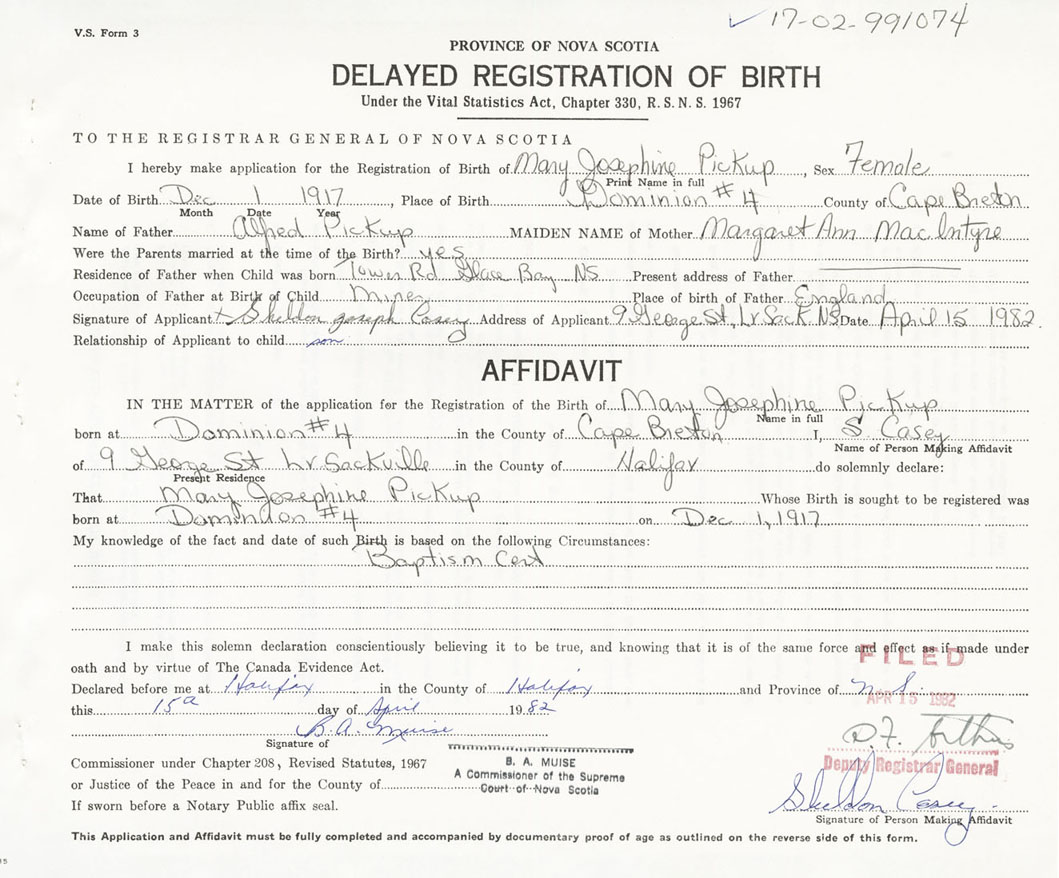 V.S. Form 3
✓ 17-02-991074
PROVINCE OF NOVA SCOTIA
DELAYED REGISTRATION OF BIRTH
Under the Vital Statistics Act, Chapter 330, R. S. N. S. 1967
TO THE REGISTRAR GENERAL OF NOVA SCOTIA
I hereby make application for the Registration of Birth of Mary Josephine Pickup, Sex Female
Print Name in full
Date of Birth Dec 1 1917, Place of Birth Dominion #4 County of Cape Breton
Month Date Year
Name of Father Alfred Pickup MAIDEN NAME of Mother Margaret Ann MacIntyre
Were the Parents married at the time of the Birth? yes
Residence of Father when Child was born Tower Rd Glace Bay NS Present address of Father
Occupation of Father at Birth of Child Miner Place of birth of Father England
Signature of Applicant x Sheldon Joseph Casey Address of Applicant 9 George St, Lr Sack NS Date April 15 1982
Relationship of Applicant to child son
AFFIDAVIT
IN THE MATTER of the application for the Registration of the Birth of Mary Josephine Pickup
Name in full
born at Dominion #4 in the County of Cape Breton I, S Casey
Name of Person Making Affidavit
of 9 George St Lr Sackville in the County of Halifax do solemnly declare:
Present Residence
That Mary Josephine Pickup Whose Birth is sought to be registered was
born at Dominion #4 on Dec 1, 1917
My knowledge of the fact and date of such Birth is based on the following Circumstances:
Baptism Cert
I make this solemn declaration conscientiously believing it to be true, and knowing that it is of the same force and effect as if made under
oath and by virtue of The Canada Evidence Act.
FILED
Declared before me at Halifax in the County of Halifax and Province of N S
APR 15 1982
this 15th day of April 1982
B.A. Muise
Signature of
D.F.
Deputy Registrar General
Commissioner under Chapter 208, Revised Statutes, 1967
or Justice of the Peace in and for the County of
If sworn before a Notary Public affix seal.
B. A. MUISE
A Commissioner of the Supreme
Court of Nova Scotia
Sheldon Casey
Signature of Person Making Affidavit
This Application and Affidavit must be fully completed and accompanied by documentary proof of age as outlined on the reverse side of this form.